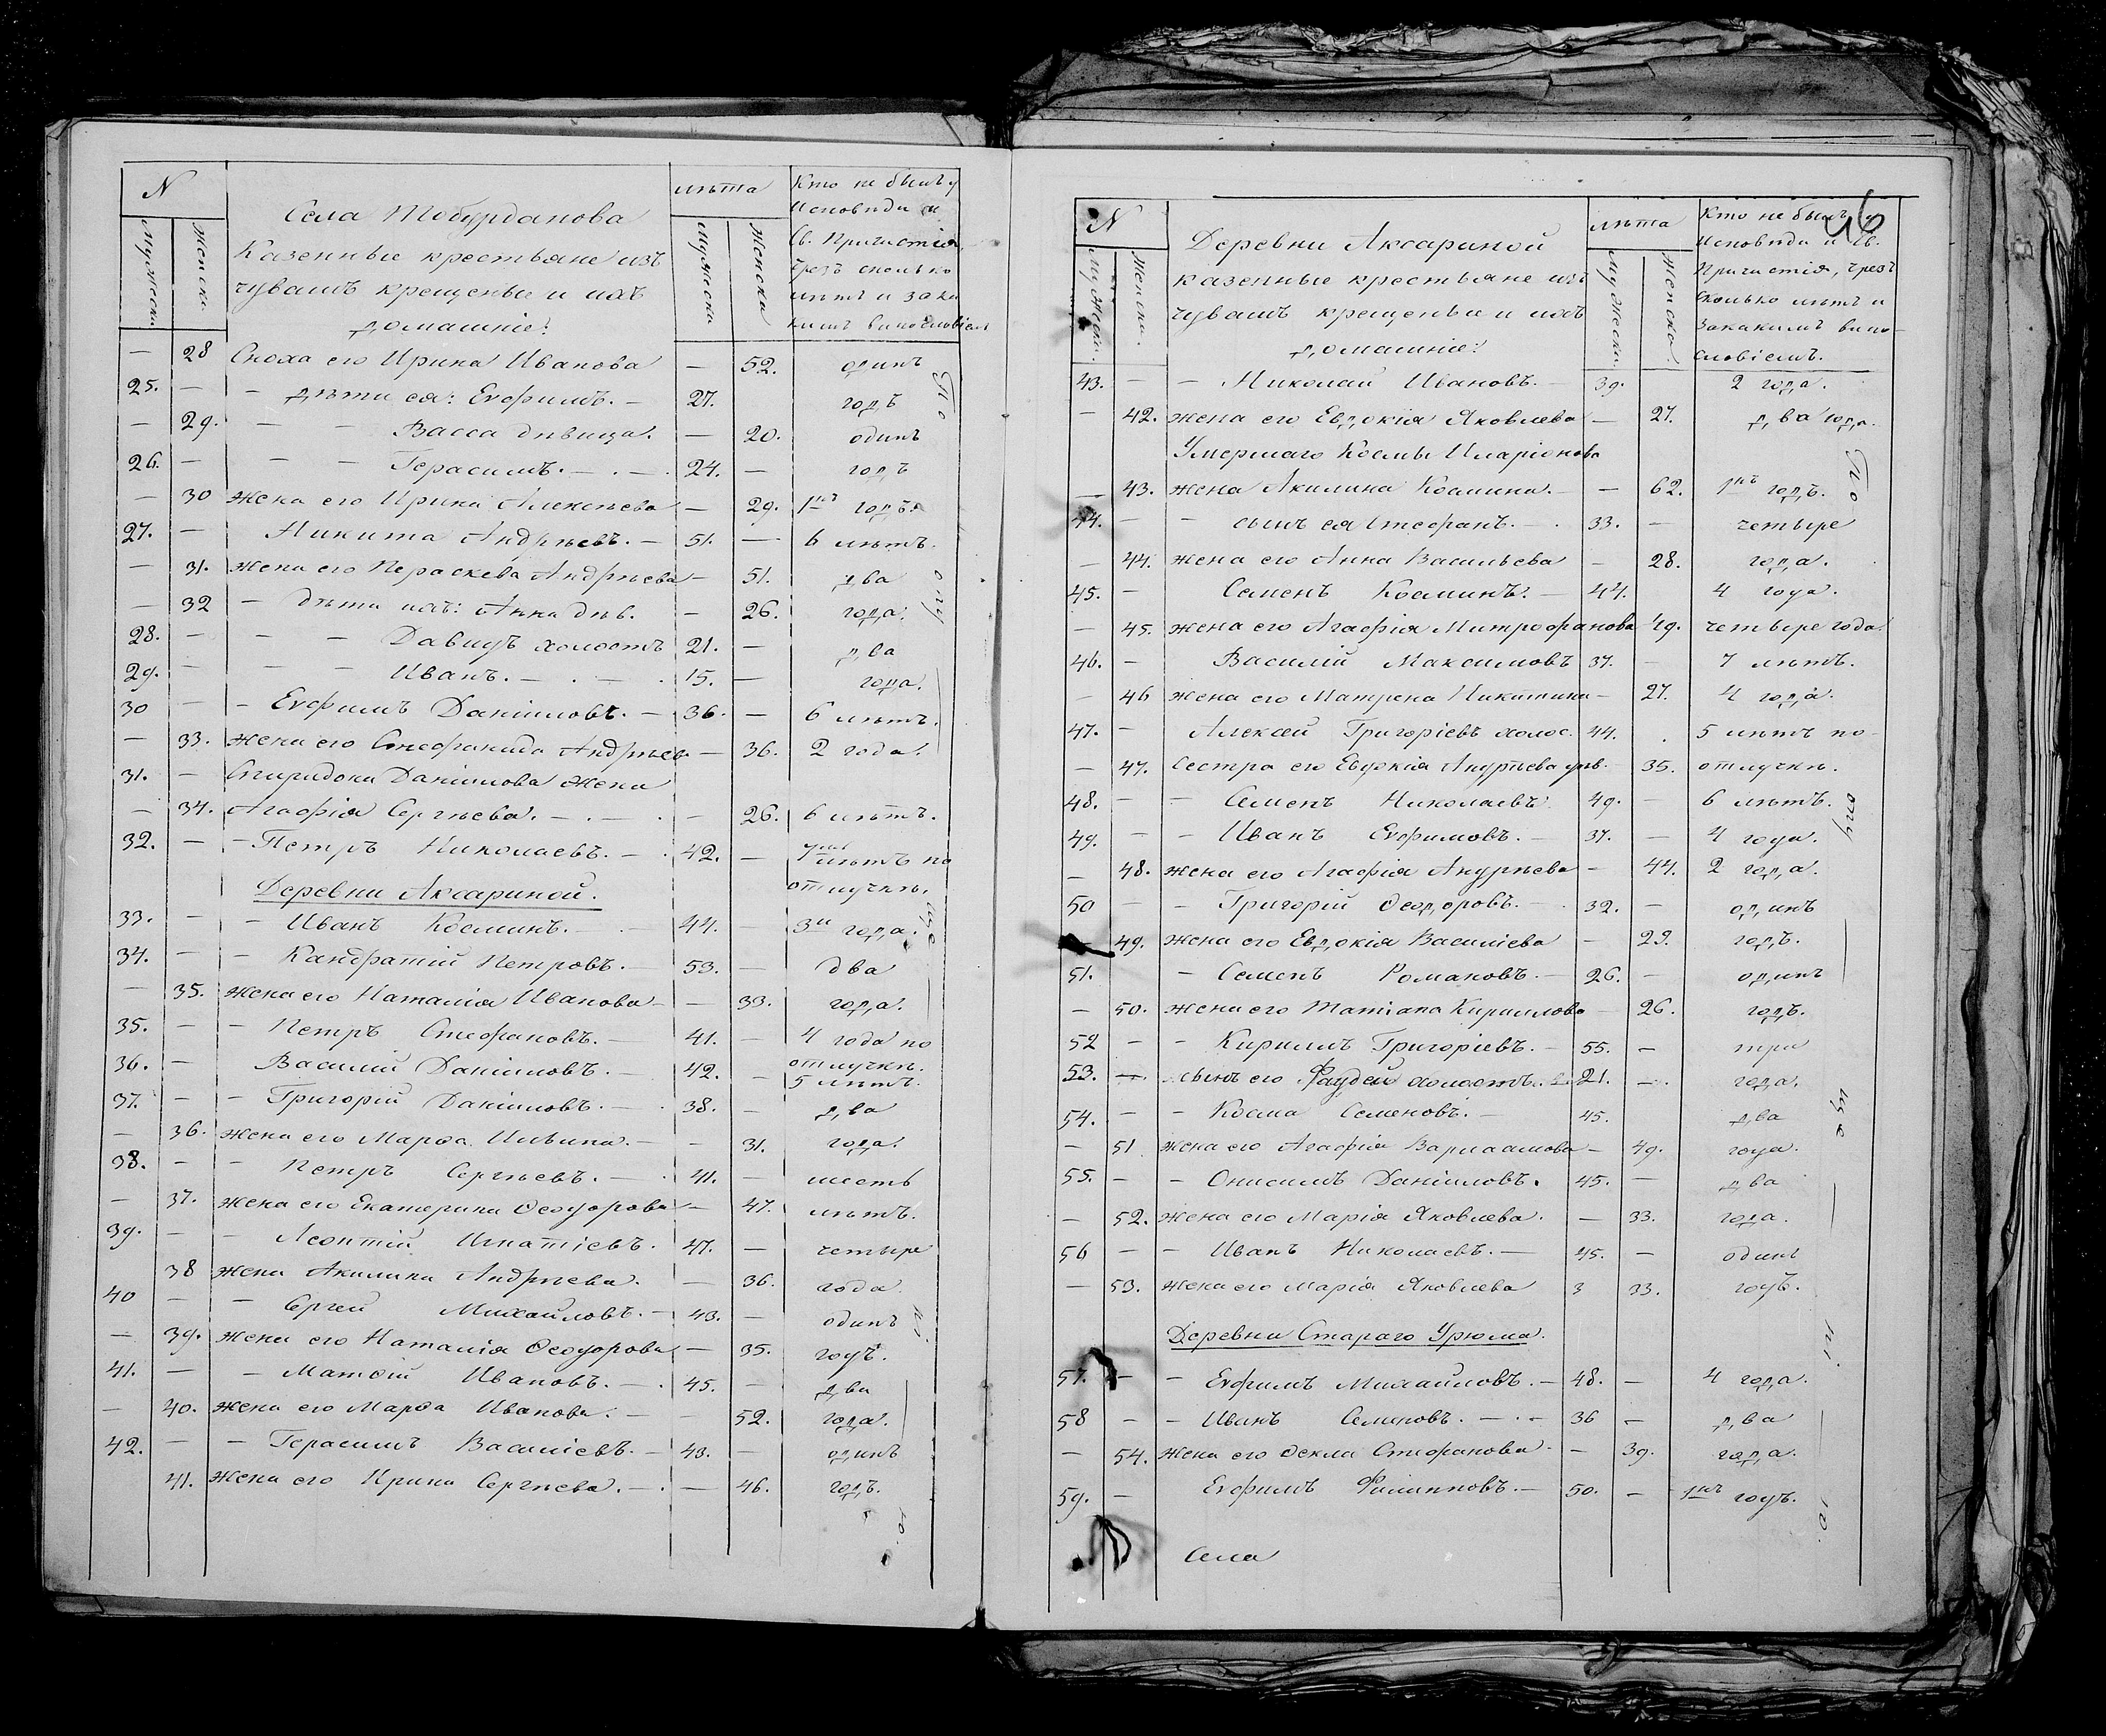 N
Мужеска
Женска
Села Тобурданова
Казенные крестьяне изъ
чувашъ крещеные и ихъ
домашніе:
лѣта
Мужеска
Женска
Кто не былъ у
Исповѣди и
Св. Причастія,
чрезъ сколько
лѣтъ и за ка
кимъ винословіем
— 28 Сноха его Ирина Иванова — 52. одинъ
25. — — дѣти ея: Евфимъ. — 27. годъ
— 29. — — Васса дѣвица. — 20. одинъ
26. — — — Герасимъ. — . — . 24. — годъ
— 30 жена его Ирина Алексѣева — 29. 1нъ годъ.
27. — Никита Андрѣевъ. — 51. — 6 лѣтъ.
— 31. жена его Параскева Андрѣева — 51. два
— 32 — дѣти ихъ: Анна дѣв. — 26. года.
28. — — — Давидъ холостъ 21. — два
29. — — — Иванъ. — . — . 15. — года.
30 — — Евфимъ Даніиловъ. — 36. — 6 лѣтъ.
— 33. жена его Стефанида Андрѣев — 36. 2 года.
31. — Спиридона Даніилова жена
— 34. Агафія Сергѣева. — . — . — 26. 6 лѣтъ.
32. — — Петръ Николаевъ. — . 42. — 7 лѣтъ по
отлучкѣ.
Деревни Аксариной.
33. — — Иванъ Косминъ. — . — 44. — 3и года.
34. — — Кандратій Петровъ. — 53. — два
— 35. жена его Наталія Иванова — — 33. года.
35. — — Петръ Стефановъ. — 41. — 4 года по
отлучкѣ.
36. — Василій Даніиловъ. — 42. — 5 лѣтъ.
37. — — Григорій Даніиловъ. — . 38. — два
— 36. жена его Марѳа Ильина. — — 31. года.
38. — — Петръ Сергѣевъ. — . 41. — шесть
— 37. жена его Екатерина Ѳеодорова — 47. лѣтъ.
39. — — Леонтій Игнатіевъ. 47. — четыре
38 жена Акилина Андрѣева. — 36. года
40 — — Сергей Михайловъ. — 43. — одинъ
— 39. жена его Наталія Ѳеодорова — 35. годъ.
41. — — Матѳій Ивановъ. — . 45. — два
— 40. жена его Марѳа Иванова. — — 52. года.
42. — — Герасимъ Василіевъ. — 43. — одинъ
41. жена его Ирина Сергѣева. — . — 46. годъ.
По
опу
ще
ні
ю.
46
N
Мужеска.
Женска.
Деревни Аксариной
казенные крестьяне изъ
чувашъ крещеные и ихъ
домашніе:
лѣта
Мужеска.
Женска.
Кто не былъ у
Исповѣди и Св.
Причастія, чрезъ
сколько лѣтъ и
за какимъ вино-
словіемъ.
43. — — Николай Ивановъ. — 39. 2 года.
— 42. жена его Евдокія Яковлева — 27. два года.
Умершаго Космы Иларіонова
— 43. жена Акилина Космина. — — 62. 1нъ годъ.
44. — — сынъ ея Стефанъ. — . 33. — четыре
— 44. жена его Анна Васильева — 28. года.
45. — Семенъ Косминъ. — 44. 4 года.
— 45. жена его Агафія Митрофанова 49. четыре года.
46. — Василій Максимовъ 37. — 7 лѣтъ.
— 46 жена его Матрена Никитина — 27. 4 года.
47. — Алексей Григоріевъ холос. 44. . 5 лѣтъ по-
— 47. Сестра его Евдокія Андрѣева дѣв. 35. отлучкѣ.
48. — — Семенъ Николаевъ. 49. — 6 лѣтъ.
49. — — Иванъ Евфимовъ. — 37. — 4 года.
— 48. жена его Агафія Андрѣева — 44. 2 года.
50 — — Григорій Ѳеодоровъ. — . 32. — одинъ
— 49. жена его Евдокія Василіева — 29. годъ.
51. — Семенъ Романовъ. — 26. — одинъ
— 50. жена его Татіана Кириллова — 26. годъ.
52 — — Кириллъ Григоріевъ. — 55. — три
53. — сынъ его Фаддей холостъ. 21. — года.
54. — — Косма Семеновъ. — 45. два
— 51 жена его Агафія Варлаамова — 49. года.
55. — — Онисимъ Даніиловъ. 45. — два
— 52. жена его Марія Яковлева. — 33. года.
56 — — Иванъ Николаевъ. — 45. — одинъ
— 53. жена его Марія Яковлева 3 33. годъ.
Деревни Стараго Урюма.
57. — — Евфимъ Михайловъ. — 48. — 4 года.
58 — — Иванъ Семеновъ. — . — 36 — два
— 54. жена его Ѳекла Стефанова — — 39. года.
59. — Евфимъ Филипповъ. — 50. — 1нъ годъ.
По
опу
ще
ні
ю.
Села